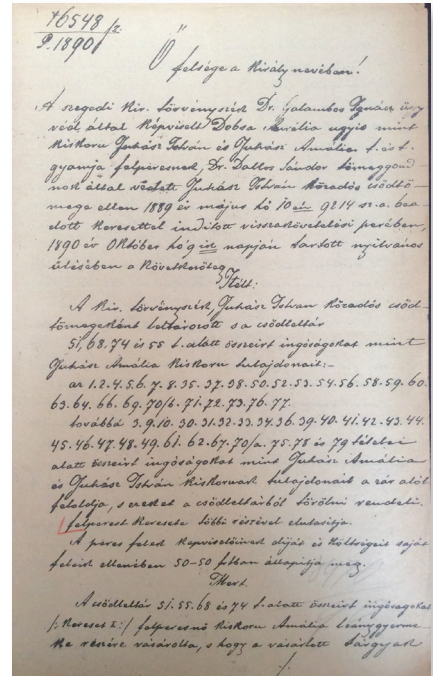 16548/2.
P. 1890
Ő felsége a király nevében!
A szegedi kir. törvényszék Dr. Galambos Ignácz ügy
véd által képviselt Dobsa Amália ugyis mint
kiskoru Juhász István és Juhász Amália t. és t.
gyámja felperesnek, Dr. Dallos Sándor tömeggond-
nok által védett Juhász István közadós csődtö-
mege ellen 1889 év május hó 10 én 9214 sz. a. bea-
dott keresettel inditott visszakövetelési perében,
1890 év Október hó 9 ik napján tartott nyilvános
ülésében a következőleg
Itélt:
A kir. törvényszék, Juhász István közadós csőd-
tömegeként leltározott s a csődleltár
51, 68. 74 és 55 t. alatt összeirt ingóságokat mint
Juhász Amália kiskoru tulajdonait;-
az 1. 2. 4. 5. 6. 7. 8. 35. 37. 38. 50. 52. 53. 54. 56. 58. 59. 60.
63. 64. 66. 69. 70/b. 71. 72. 73. 76. 77.
továbbá 3. 9. 10. 30. 31. 32. 33. 34. 36. 39. 40. 41. 42. 43. 44.
45. 46. 47. 48. 49. 61. 62. 67. 70/a. 75. 78 és 79 tételei
alatt összeirt ingóságokat mint Juhász Amália
és Juhász István kiskoruak tulajdonait a zár alól
feloldja, s ezeket a csődleltárból törölni rendeli.
felperest keresete többi részével elutasitja.
A peres felek képviselőinek diját és költségeit saját
feleik ellenében 50-50 ftban állapitja meg.
Mert
A csődleltár 51. 55. 68 és 74 t. alatt összeirt ingóságokat
/: kereset I :/ felperesnő kiskoru Amália leánygyerme-
ke részére vásárolta, s hogy a vásárlott tárgyak
./.